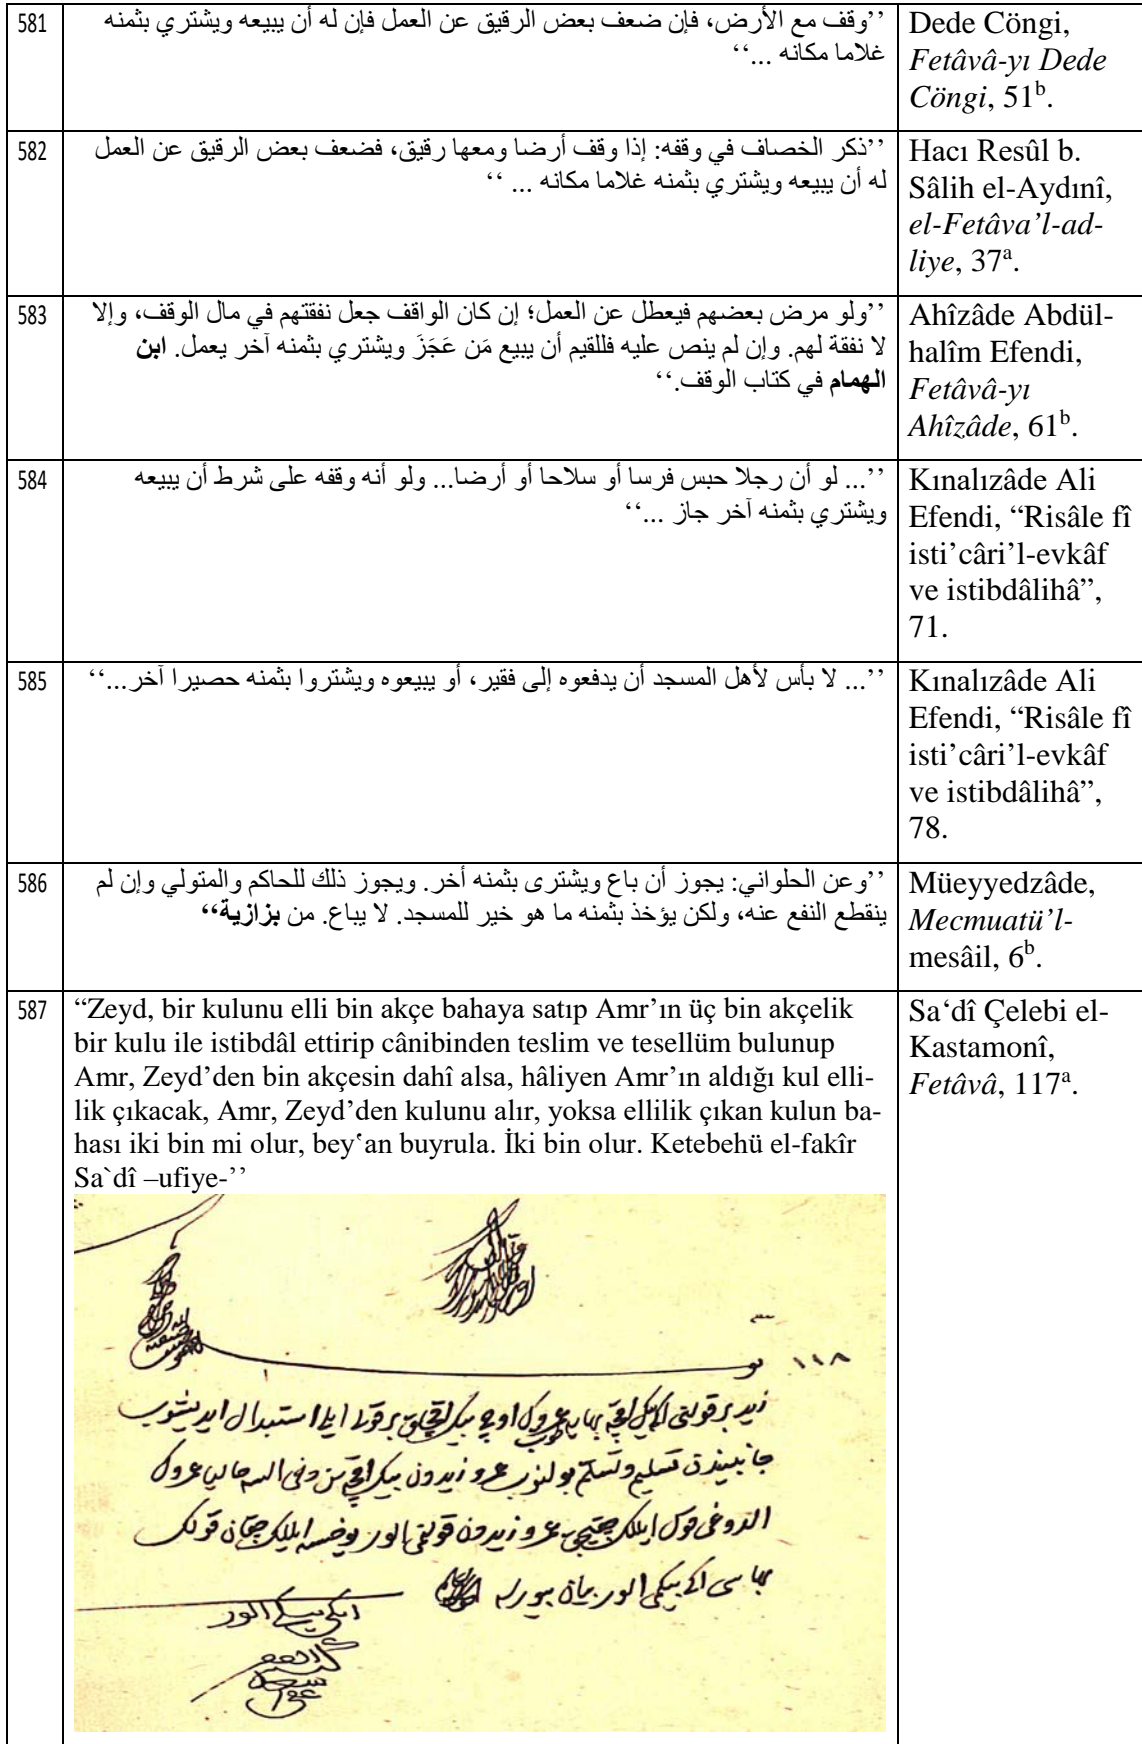 581
’’وقف مع الأرض، فإن ضعف بعض الرقيق عن العمل فإن له أن يبيعه ويشتري بثمنه
غلاما مكانه ...‘‘
Dede Cöngi,
Fetâvâ-yı Dede
Cöngi, 51b.
582
’’ذكر الخصاف في وقفه: إذا وقف أرضا ومعها رقيق، فضعف بعض الرقيق عن العمل
له أن يبيعه ويشتري بثمنه غلاما مكانه ... ‘‘
Hacı Resûl b.
Sâlih el-Aydınî,
el-Fetâva’l-ad-
liye, 37a.
583
’’ولو مرض بعضهم فيعطل عن العمل؛ إن كان الواقف جعل نفقتهم في مال الوقف، وإلا
لا نفقة لهم. وإن لم ينص عليه فللقيم أن يبيع مَن عَجَزَ ويشتري بثمنه آخر يعمل. ابن
الهمام في كتاب الوقف.‘‘
Ahîzâde Abdül-
halîm Efendi,
Fetâvâ-yı
Ahîzâde, 61b.
584
’’... لو أن رجلا حبس فرسا أو سلاحا أو أرضا... ولو أنه وقفه على شرط أن يبيعه
ويشتري بثمنه آخر جاز ...‘‘
Kınalızâde Ali
Efendi, “Risâle fî
isti’câri’l-evkâf
ve istibdâlihâ”,
71.
585
’’... لا بأس لأهل المسجد أن يدفعوه إلى فقير، أو يبيعوه ويشتروا بثمنه حصيرا آخر...‘‘
Kınalızâde Ali
Efendi, “Risâle fî
isti’câri’l-evkâf
ve istibdâlihâ”,
78.
586
’’وعن الحلواني: يجوز أن باع ويشترى بثمنه أخر. ويجوز ذلك للحاكم والمتولي وإن لم
ينقطع النفع عنه، ولكن يؤخذ بثمنه ما هو خير للمسجد. لا يباع. من بزازية‘‘
Müeyyedzâde,
Mecmuatü’l-
mesâil, 6b.
587
“Zeyd, bir kulunu elli bin akçe bahaya satıp Amr’ın üç bin akçelik
bir kulu ile istibdâl ettirip cânibinden teslim ve tesellüm bulunup
Amr, Zeyd’den bin akçesin dahî alsa, hâliyen Amr’ın aldığı kul elli-
lik çıkacak, Amr, Zeyd’den kulunu alır, yoksa ellilik çıkan kulun ba-
hası iki bin mi olur, bey‛an buyrula. İki bin olur. Ketebehü el-fakîr
Sa`dî –ufiye-’’
Sa‘dî Çelebi el-
Kastamonî,
Fetâvâ, 117a.
١١٨
زيد بر قولنى
استبدال ايدیشوب
جانبيندن تسليم وتسلم بولنوب عمرو زيدون
عمرو زيدون قولنى الور
الور بيان بيورله
ايكى بيك الور